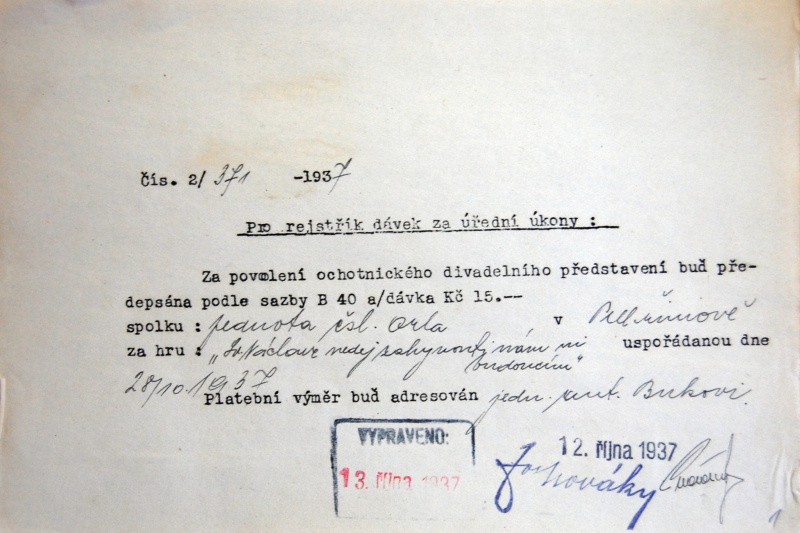 čís. 2/ 371 -1937
Pro rejstřík dávek za úřední úkony :
Za povolení ochotnického divadelního představení buď pře-
depsána podle sazby B 40 a/dávka Kč 15.--
spolku : jednota čsl. Orla v
za hru : „Sv. Václave nedej zahynouti nám ni uspořádanou dne
budoucím"
28/10. 1937
Platební výměr buď adresován jedn. Bukovi.
VYPRAVENO:
12. října 1937
13. října 1937
1